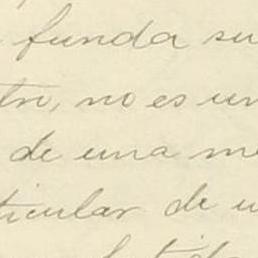 funda su
tro, no es un
de una me
ticular de u